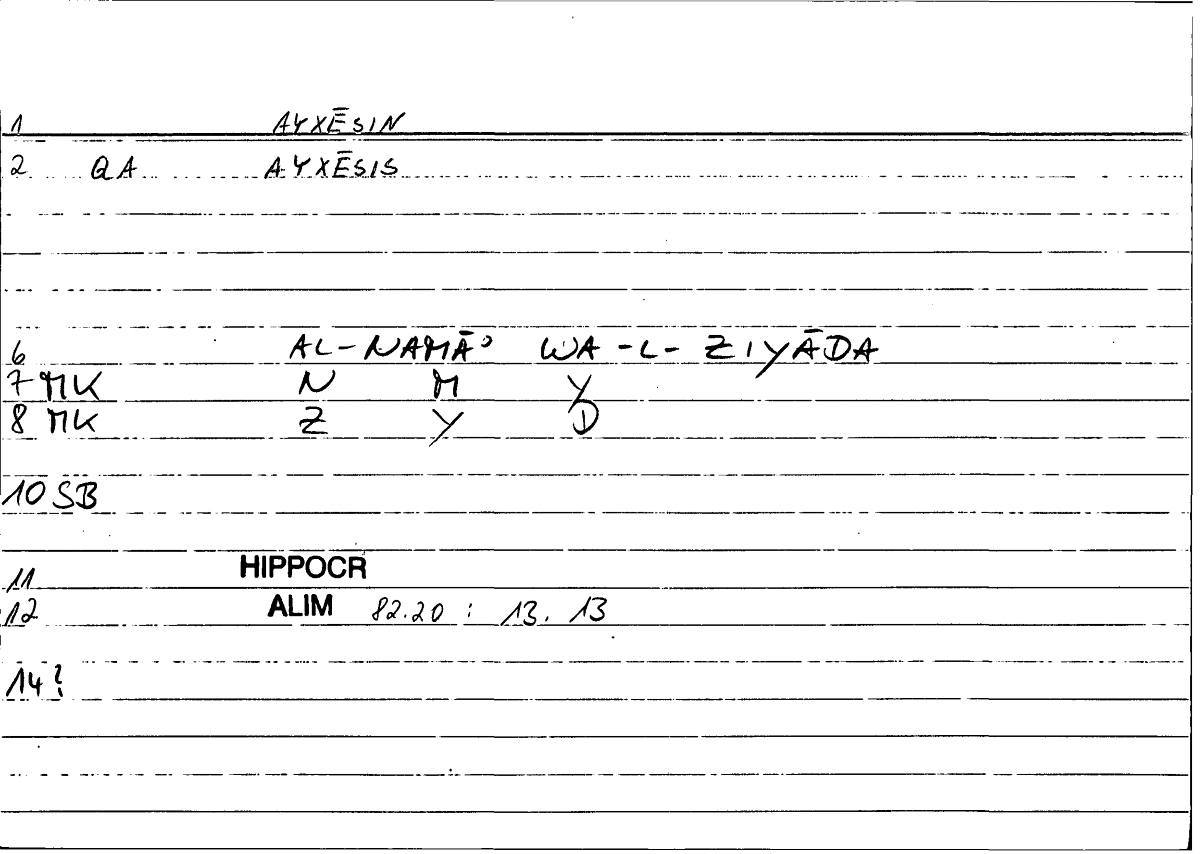 1 AYXĒSIN
2 QA AYXĒSIS
6 AL-NAMĀʾ WA-L-ZIYĀDA
7 MK N M Y
8 MK Z Y D
10 SB
11 HIPPOCR
12 ALIM 82.20 : 13. 13
14 ?